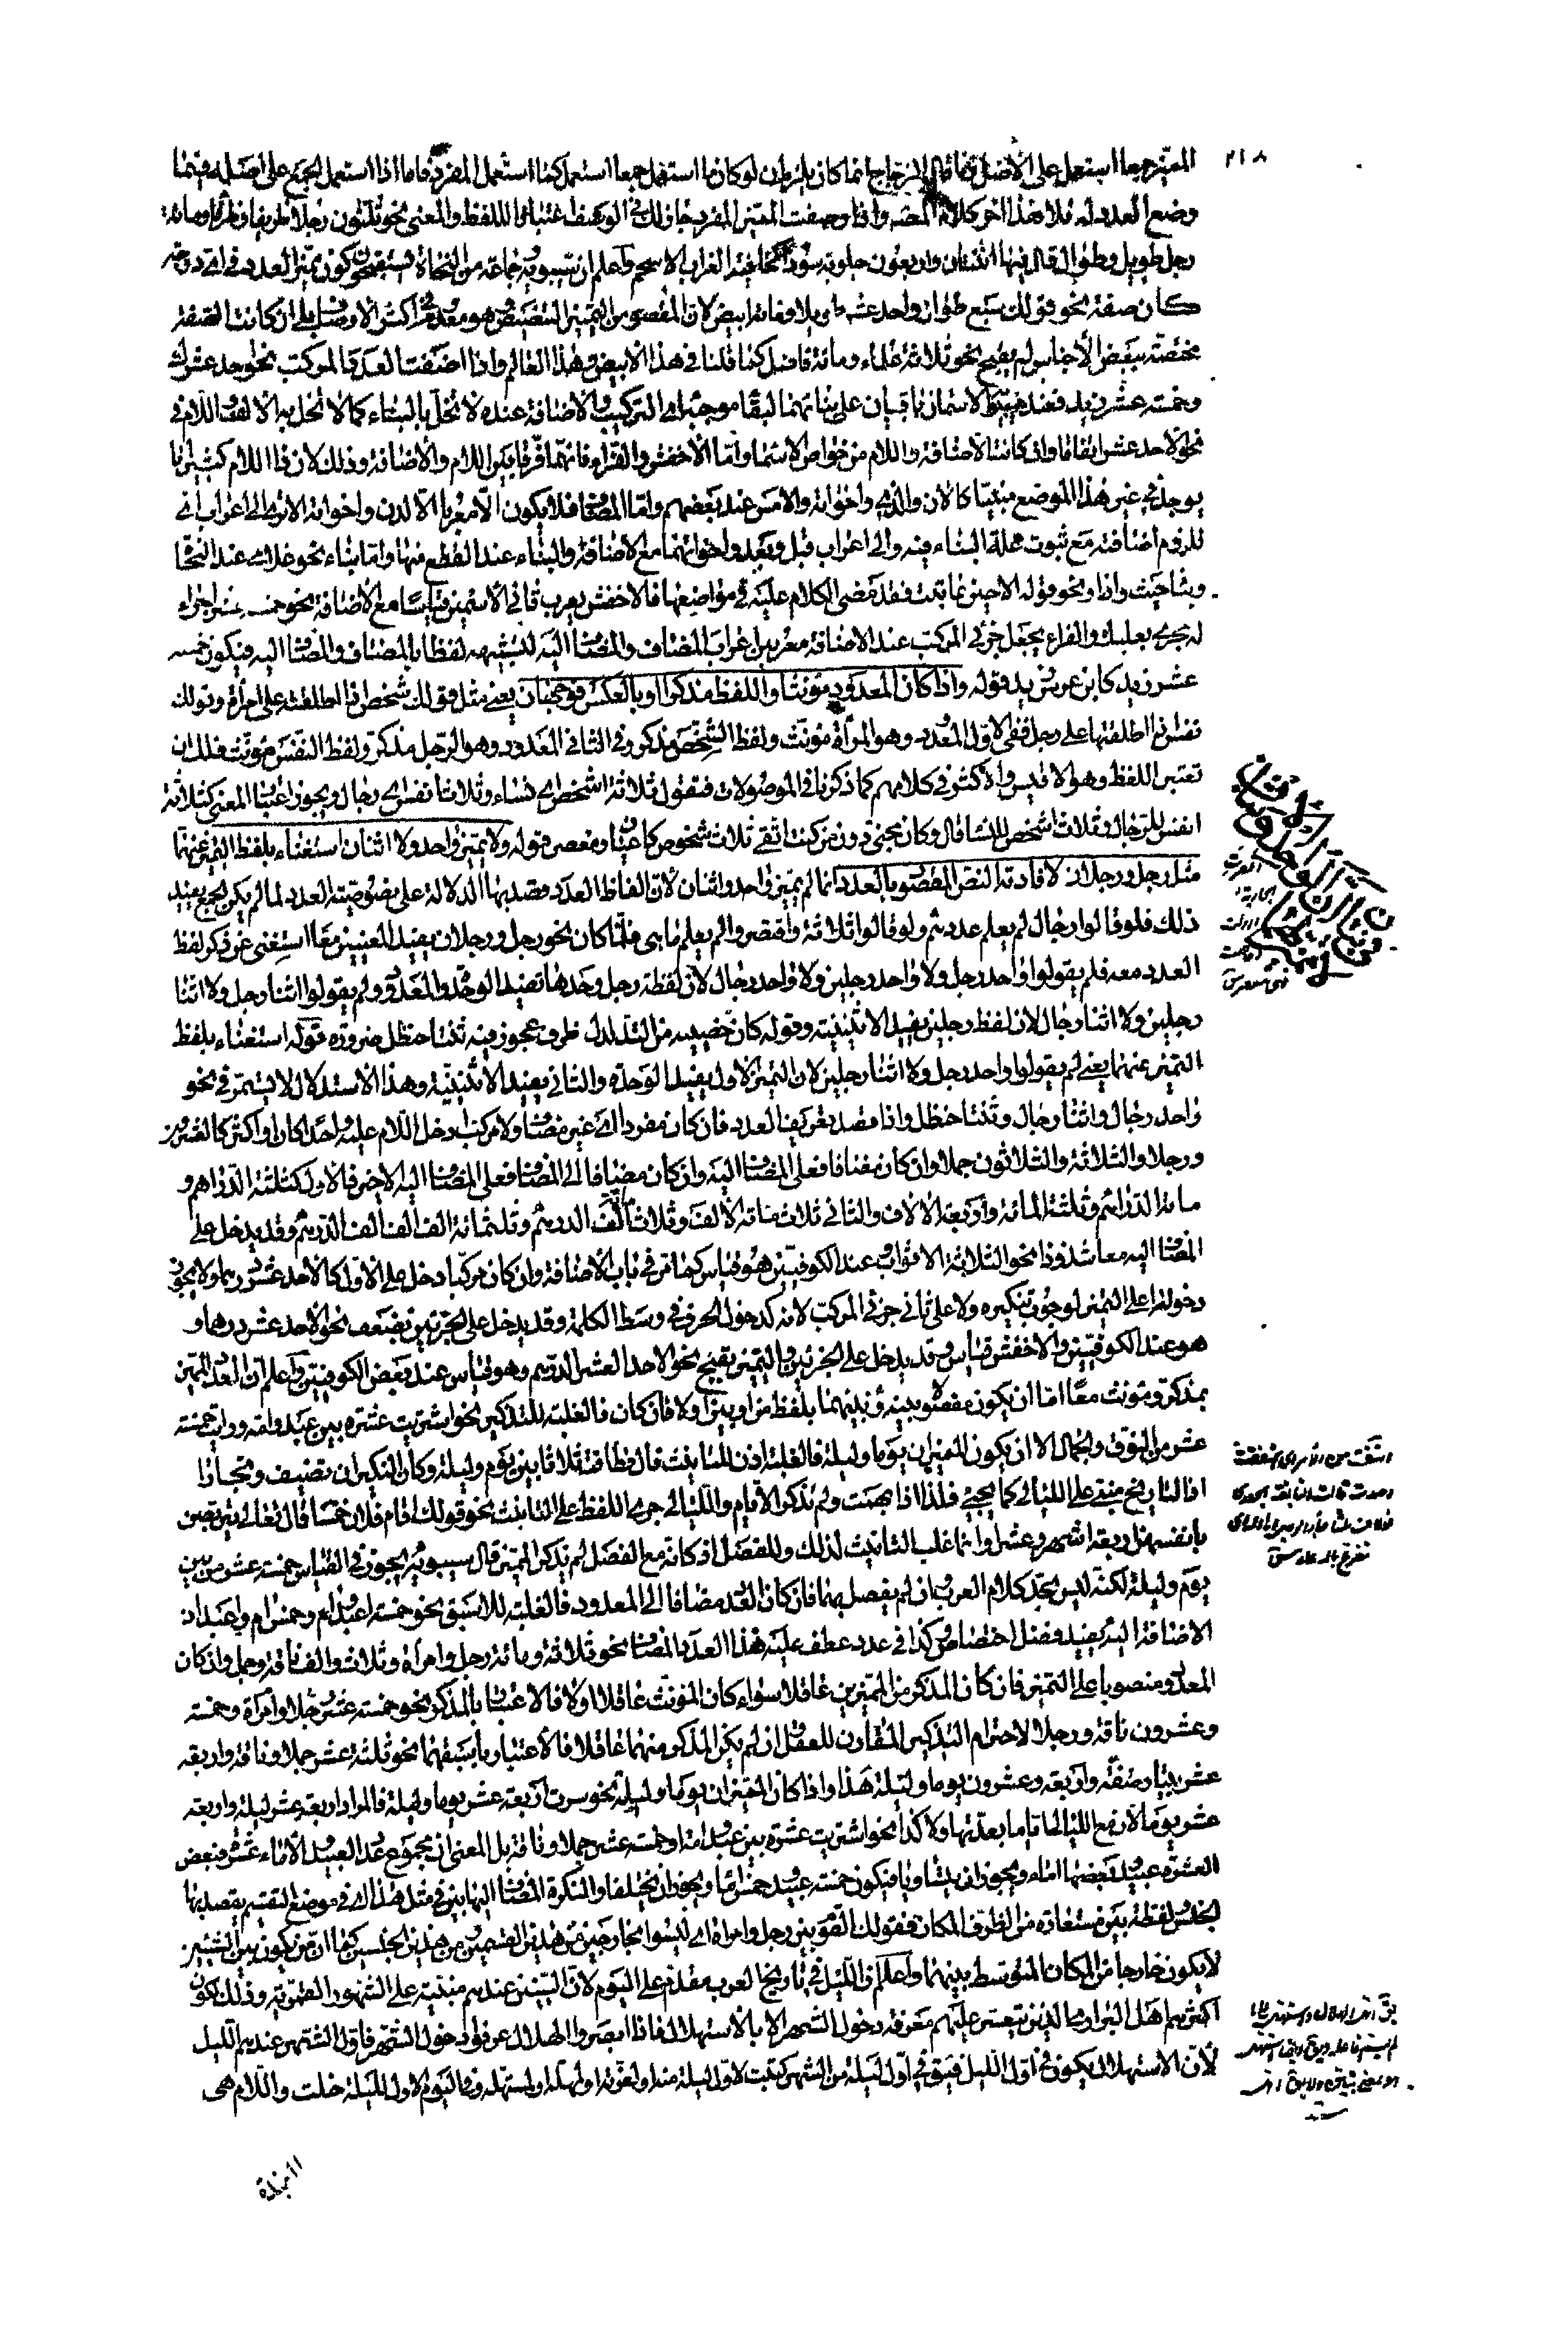 ٢١٨
المميز جمعا استعمل على الأصل قال الزجاج انما كان يلزم ان لو كان ما استعمل جمعا استعمل كما استعمل المفرد فاما اذا استعمل الجمع على اصله فيما
وضع العدد له فلا هذا آخر كلام المصنف واذا وصفت المميز المفرد جاز لك في الوصف اعتبار اللفظ والمعنى نحو ثلثون رجلا ظريفا وظرفاء ومائة
رجل طويل وطوال قال فيها اثنتان واربعون حلوبة سودا كخافية الغراب الاسحم واعلم ان سيبويه وجماعة من النحاة يستقبحون كون مميز العدد في اي درجة
كان صفة نحو قولك سبع طوال واحد عشر طويلا ومائة ابيض لان المقصود من التمييز التنصيص وهو معدوم في اكثر الاوصاف بلى ان كانت الصفة
مختصة ببعض الأجناس لم يقبح نحو ثلاثة علماء ومائة فاضل كما قلنا في هذا الابيض وهذا العالم واذا اضفت العدد المركب نحو احد عشرك
وخمسة عشر زيد فعند سيبويه الاسمان باقيان على بنائهما لبقاء موجبه اي التركيب والاضافة عنده لا تخل بالبناء كما لا تخل به الالف واللام في
نحو الاحد عشر اتفاقا وان كانت الاضافة واللام من خواص الاسماء واما الأخفش والفراء فانهما فرقا بين اللام والاضافة وذلك لان ذا اللام كثيرا ما
يوجد في غير هذا الموضع مبنيا كالآن والذي واخواته والامس عند بعضهم واما المضاف فلا يكون الا معربا الا لدن واخواته الا ترى الى اعراب اي
للزوم اضافته مع ثبوت علة البناء فيه والى اعراب قبل وبعد واخواتهما مع الاضافة والبناء عند القطع منها واما بناء نحو غلامي عند النحاة
وبناء حيث واذا ونحو قوله الا حين فقد مضى الكلام عليه في مواضعها فالاخفش يعرب ثاني الاسمين قياسا مع الاضافة نحو خمسة عشر اجراء
له مجرى بعلبك والفراء يجعل جزئي المركب عند الاضافة معربين اعراب المضاف والمضاف اليه لتشبيهه لفظا بالمضاف والمضاف اليه فيكون خمسة
عشر زيد كابن عرس زيد قوله واذا كان المعدود مؤنثا واللفظ مذكرا او بالعكس فوجهان يعني مثل قولك شخص اذا اطلقته على امرأة وقولك
نفس اذا اطلقتها على رجل ففي الاول المعدود وهو المرأة مؤنث ولفظ الشخص مذكر وفي الثاني المعدود وهو الرجل مذكر ولفظ النفس مؤنث فلك ان
تعتبر اللفظ وهو الاقيس والأكثر في كلامهم كما ذكرنا في الموصولات فتقول ثلاثة اشخص اي نساء وثلاث انفس اي رجال ويجوز اعتبار المعنى كثلاثة
انفس للرجال وثلاث اشخص للنساء قال وكان مجني دون من كنت اتقي ثلاث شخوص كاعبان ومعصر قوله ولا يميز واحد ولا اثنان استغناء بلفظ التمييز عنهما
مثل رجل ورجلان لافادته النص المقصود بالعدد انما لم يميز واحد واثنان لان الفاظ العدد قصد بها الدلالة على نصوصية العدد لما لم يكن الجمع يفيد
ذلك فلو قالوا رجال لم يعلم عددهم ولو قالوا ثلاثة واقتصروا لم يعلم ما هي فلما كان نحو رجل ورجلان يفيد المعنيين معا استغنى عن ذكر لفظ
العدد معه فلم يقولوا واحد رجل ولا واحد رجلين ولا واحد رجال لان لفظة رجل وحدها تفيد الوحدة والمعدود ولم يقولوا اثنا رجل ولا اثنا
رجلين ولا اثنا رجال لان لفظ رجلين يفيد الاثنينية وقوله كأن خصييه من التدلدل ظرف عجوز فيه ثنتا حنظل ضرورة قوله استغناء بلفظ
التمييز عنهما يعني لم يقولوا واحد رجل ولا اثنا رجلين لان التمييز الاول يفيد الوحدة والثاني يفيد الاثنينية وهذا الاستدلال لا يستمر في نحو
واحد رجال واثنا رجال وثنتا حنظل واذا قصد تعريف العدد فان كان مفردا اي غير مضاف ولا مركب دخل اللام عليه واحدا كان او اكثر كالعشرون
ورجلا والثلاثة والثلاثون جملا وان كان مضافا فعلى المضاف اليه وان كان مضافا الى المضاف فعلى المضاف اليه الاخير فالاول كثلثة الدراهم و
مائة الدراهم وثلثة المائة واربعة الالاف والثاني ثلاث مائة الالف وثلاث مائة الف الدرهم وثلثمائة الف الف الدرهم وقد يدخل على
المضاف اليه معا شذوذا نحو الثلاثة الاثواب عند الكوفيين هو قياس كما مر في باب الاضافة وان كان مركبا دخل على الاول كالاحد عشر درهما ولا يجوز
دخولها على التمييز لوجوب تنكيره ولا على ثاني جزئي المركب لانه كدخول الحرف في وسط الكلمة وقد يدخل على الجزئين بضعف نحو الاحد العشر درهما و
هو عند الكوفيين والاخفش قياس وقد يدخل على الجزئين والتمييز بقبح نحو الاحد العشر الدرهم وهو قياس عند بعض الكوفيين واعلم ان العدد المميز
بمذكر ومؤنث معا اما ان يكون مفصولا بينه وبينهما بلفظ من او بين او لا فان كان فالغلبة للتذكير نحو اشتريت عشرة بين عبد وامة ورايت خمسة
عشر من النوق والجمال الا ان يكون المميزان يوما وليلة فالغلبة اذن للتأنيث قال فطافت ثلاثا بين يوم وليلة وكان النكير ان تضيف وتجأرا
اذ التاريخ مبني على الليالي كما يجيء فلذا اذا ابهمت ولم تذكر الايام والليالي جرى اللفظ على التأنيث نحو قولك اقام فلان خمسا قال تعالى يتربصن
بانفسهن اربعة اشهر وعشرا وانما غلب التأنيث لذلك وللفصل اذ كأنه مع الفصل لم تذكر المميز قال سيبويه يجوز في القياس خمسة عشر من بين
يوم وليلة لكنه ليس بحد كلام العرب وان لم يفصل بينهما فان كان العدد مضافا الى المعدود فالغلبة للاسبق نحو خمسة اعبد وآم وخمس آم واعبد اذ
الاضافة اليه يفيد فضل اختصاص وكذا في عدد عطف عليه هذا العدد المضاف نحو ثلاثة ومائة رجل وامرأة وثلاث والف ناقة وجمل وان كان
المعدود منصوبا على التمييز فان كان المذكر من المميزين عاقلا سواء كان المؤنث عاقلا او لا فالاعتبار بالمذكر نحو خمسة عشر رجلا وامرأة وخمسة
وعشرون ناقة ورجلا لاحترام التذكير المقارن للعقل وان لم يكن المذكر منهما عاقلا فالاعتبار باسبقهما نحو ثلثة عشر جملا وناقة واربعة
عشر بيتا وصفة واربعة وعشرون يوما وليلة هذا واذا كان المميزان يوما وليلة نحو سرت اربعة عشر يوما وليلة فالمراد اربعة عشر ليلة واربعة
عشر يوما لان مع الليالي اياما بعدتها ولا كذا نحو اشتريت عشرة بين عبد وامة او خمسة عشر جملا وناقة بل المعنى ان مجموع عدد العبيد والاماء عشرة فبعض
العشرة عبيد وبعضها اماء ويجوز ان يتساويا فيكون خمسة عبيد وخمس اماء ويجوز ان يختلفا والنكرة المضاف اليها بين في مثل هذا اي في موضع التقسيم يقصد بها
الجنس لفظة بين مستعارة من الظرف المكان فقولك القوم بين رجل وامرأة اي ليسوا بخارجين من هذين القسمين من هذين الجنسين كما ان من يكون بين الشيئين
لا يكون خارجا من المكان المتوسط بينهما واعلم ان الليل في تاريخ العرب مقدم على اليوم لان السنين عندهم مبنية على الشهور القمرية وذلك لكون
اكثرهم اهل البراري الذين يتعسر عليهم معرفة دخول الشهر الا بالاستهلال فاذا ابصروا الهلال عرفوا دخول الشهر فاول الشهر عندهم الليل
لان الاستهلال يكون في اول الليل فيق في اول ليلة من الشهر كتبت لاول ليلة منه او لغرته او مهله او مستهله وفي اليوم الاول لليلة خلت واللام هي